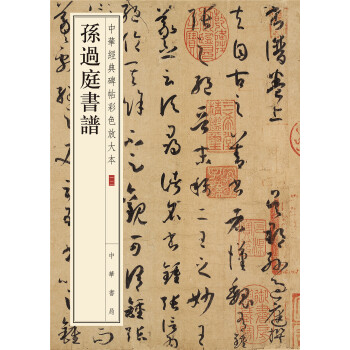 孫過庭書譜
中華經典碑帖彩色放大本
中華書局
書譜卷上 吳郡孫過庭撰
夫自古之善書者漢魏有鍾
張之絕晉末稱二王之妙王
羲之云頃尋諸名書鍾張信為
絕倫其餘不足觀可謂鍾張